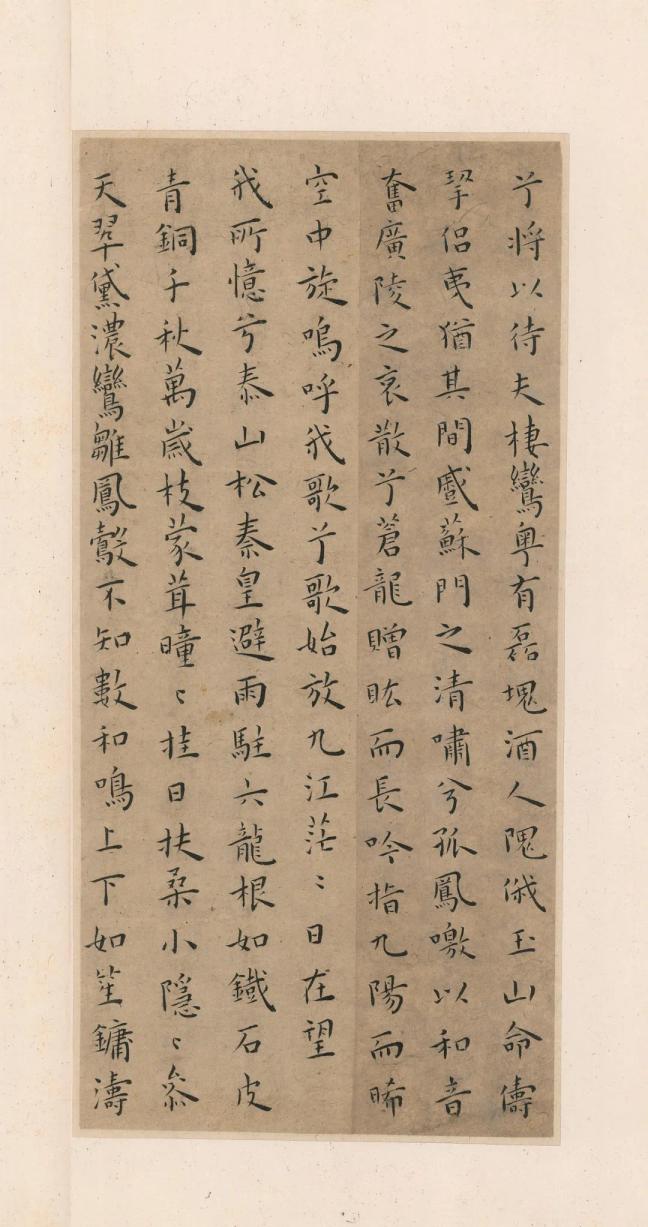 兮將以待夫棲鸞粤有磊塊酒人隗俄玉山命儔
挈侣夷猶其間蹙蘇門之清嘯兮孤鳳噭以和音
奮廣陵之哀散兮蒼龍贈眩而長吟指九陽而晞
空中旋嗚呼我歌兮歌始放九江茫〻日在望
我所憶兮泰山松秦皇避雨駐六龍根如鐵石皮
青銅千秋萬歲枝蒙茸曈〻挂日扶桑小隱〻叅
天翠黛濃鸞雛鳳鷇不知數和鳴上下如笙鏞濤